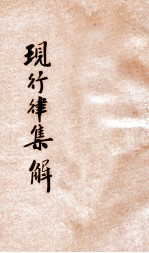 現行律集解